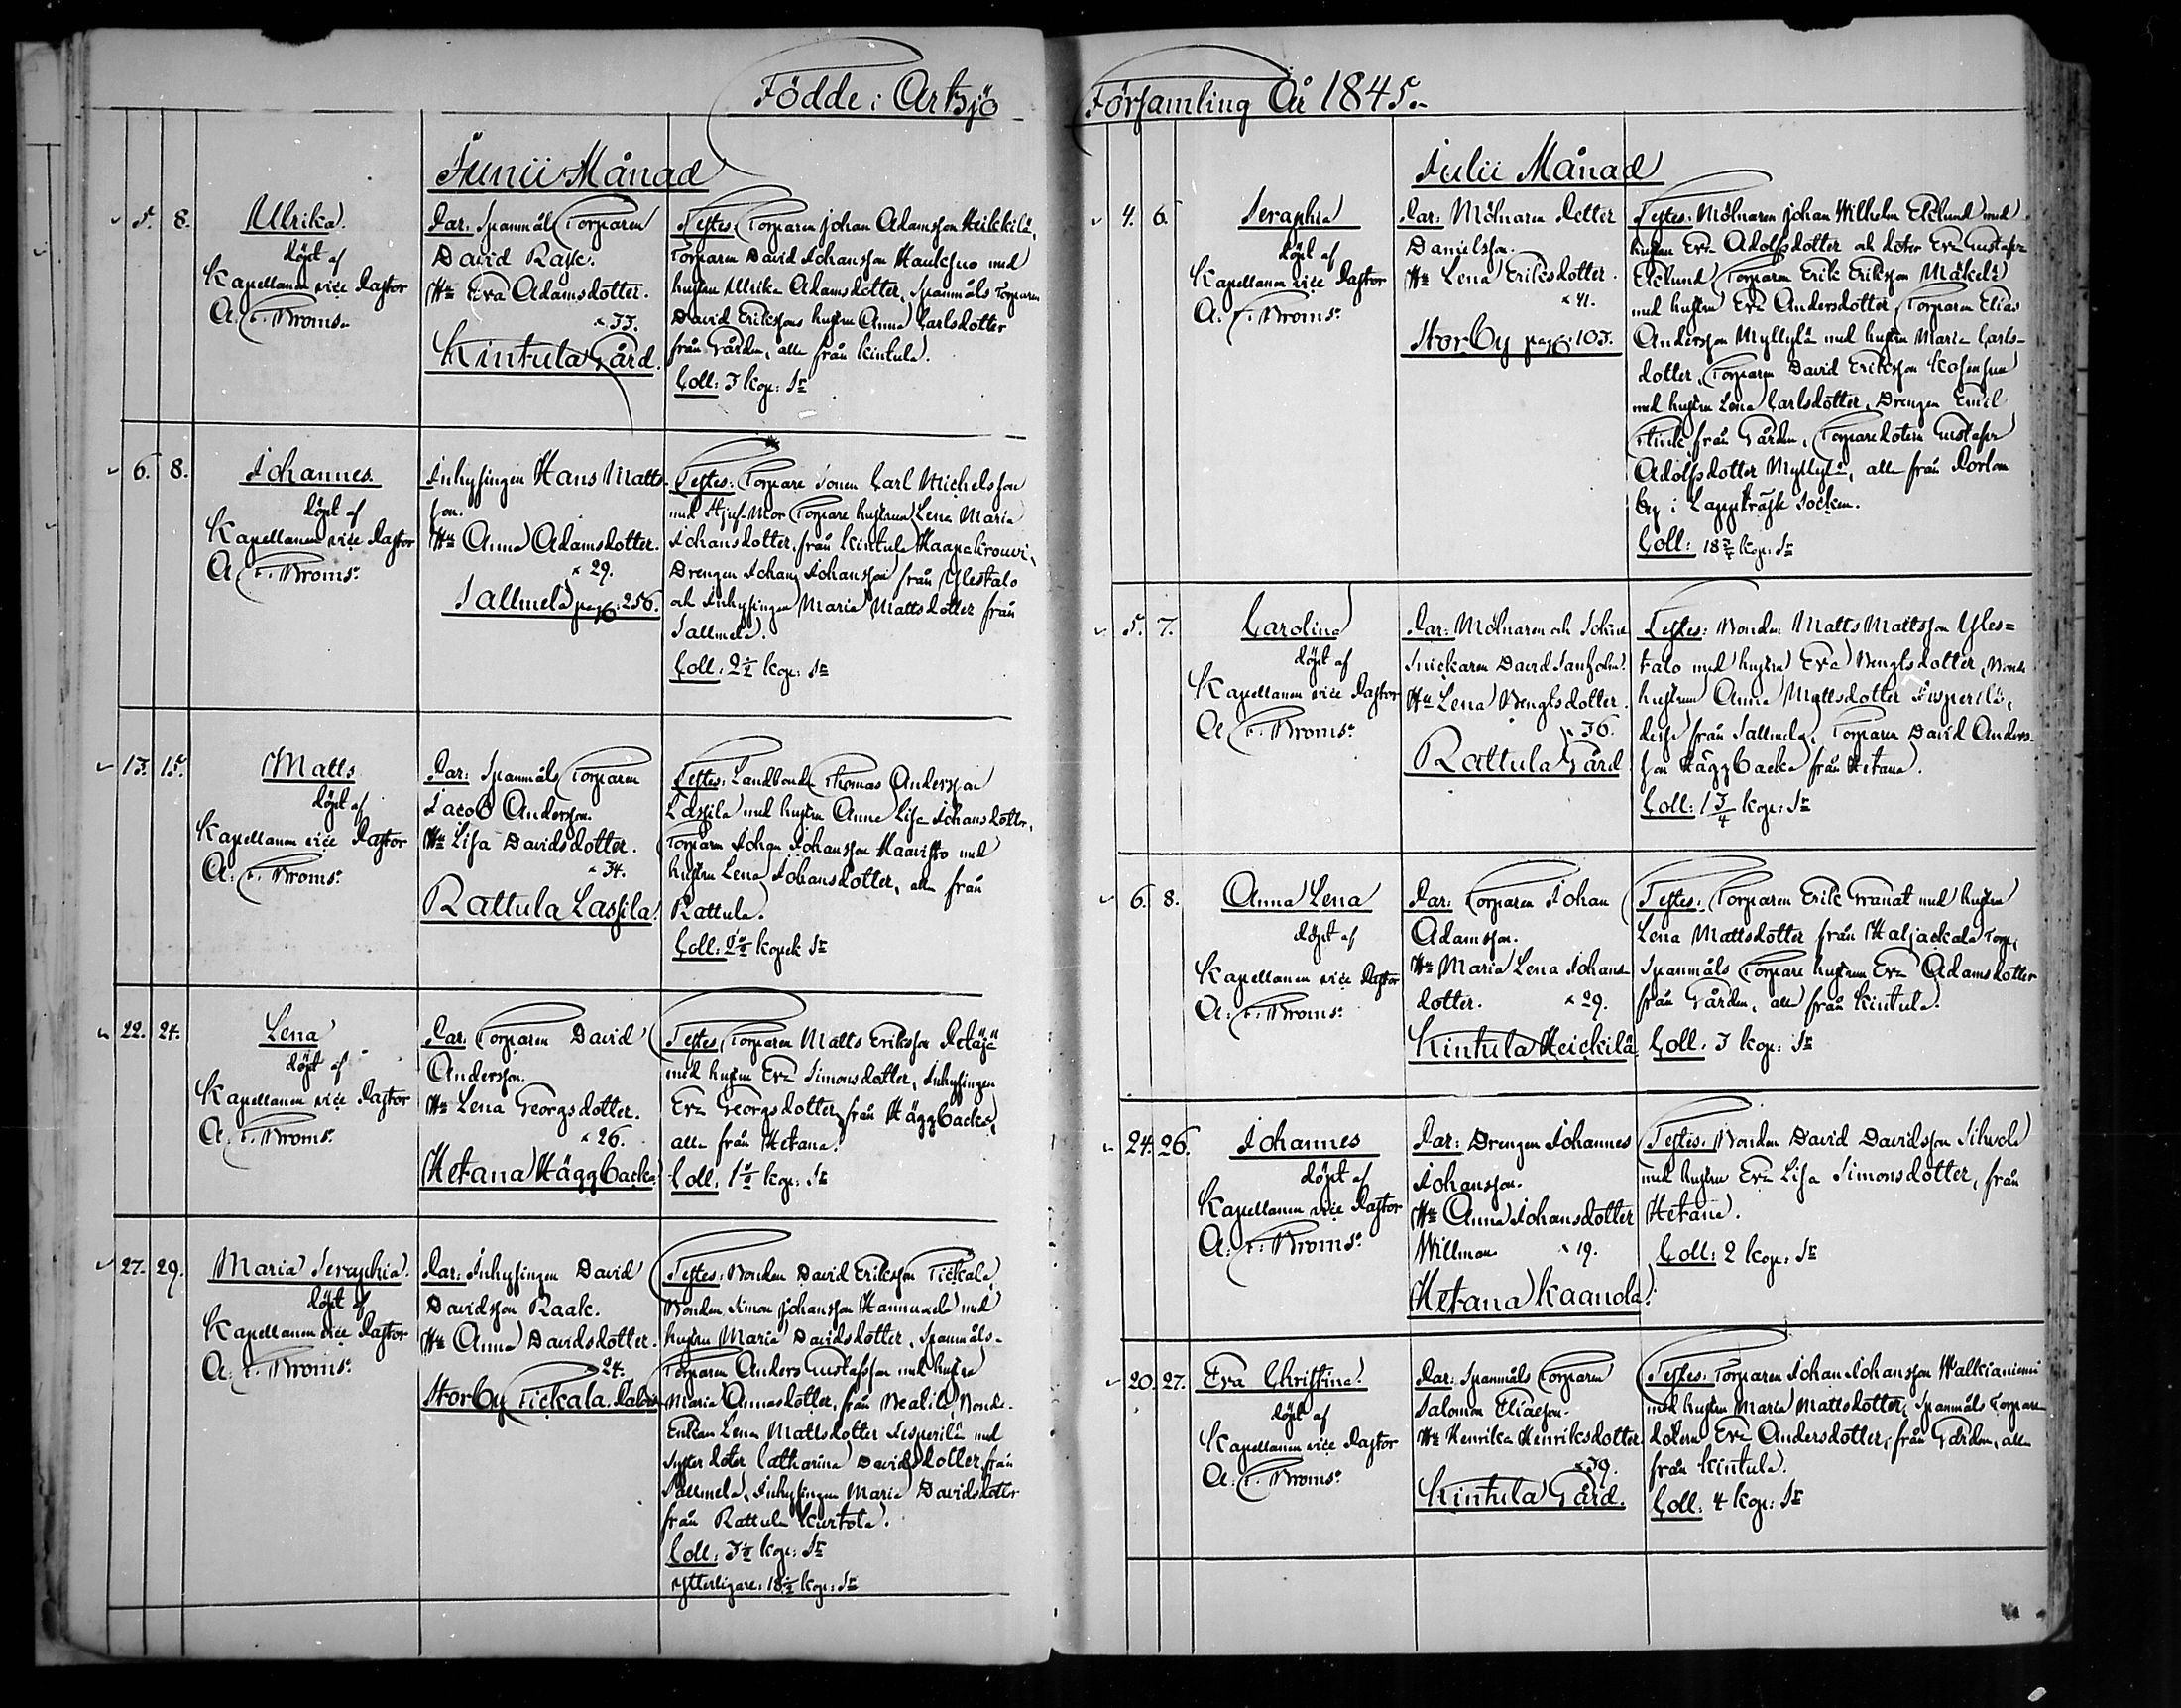 Födde i Artsjö Församling År 1845.
Junii Månad
5. 8.
Ulrika.
döpt af
Kapellanen vice Pastor
A. F. Broms.
Par: Spanmåls Torparen
David Rask.
Hu Eva Adamsdotter.
x 33.
Kintula Gård.
Testes: Torparen Johan Adamsson Heikkilä,
Torparen David Johansson Haukjuo med
hustru Ulrika Adamsdotter, Spanmåls Torparen
David Erikssons hustru Anna Carlsdotter
från Gården, alla från Kintula.
Coll: 3 kop: Sr
6. 8.
Johannes
döpt af
Kapellanen vice Pastor
A. F. Broms.
Inhysingen Hans Matts-
son.
Hu Anna Adamsdotter.
x 29.
Sallmela pag: 256.
Testes: Torpare Sonen Carl Michelsson
med Stjuf-Mor Torpare hustrun Lena Maria
Johansdotter, från Kintula Haapakrouvi,
Drengen Johan Johansson från Ylestalo
och Inhysingen Maria Mattsdotter från
Sallmela.
Coll: 2 1/2 kop: Sr
13. 15.
Matts
döpt af
Kapellanen vice Pastor
A. F. Broms.
Par: Spanmåls Torparen
Jacob Andersson.
Hu Lisa Davidsdotter.
x 34.
Rattula Lassila.
Testes: Landbonden Thomas Andersson
Lassila med hustru Anna Lisa Johansdotter,
Torparen Johan Johansson Haavisto med
hustru Lena Johansdotter, alla från
Rattula.
Coll: 2 1/2 kopek Sr
22. 24.
Lena
döpt af
Kapellanen vice Pastor
A. F. Broms.
Par: Torparen David
Andersson.
Hu Lena Georgsdotter.
x 26.
Hetana Häggbacka
Testes: Torparen Matts Eriksson Petäjä
med hustru Eva Simonsdotter, Inhysingen
Eva Georgsdotter, från Häggbacka,
alla från Hetana.
Coll: 1 1/2 kop: Sr
27. 29.
Maria Seraphia.
döpt af
Kapellanen vice Pastor
A. F. Broms.
Par: Inhysingen David
Davidsson Raak.
Hu Anna Davidsdotter.
x 24.
Storby Tickala.
Testes: Bonden David Eriksson Tickala,
Bonden Simon Johansson Hannukela med
hustru Maria Davidsdotter, Spanmåls-
Torparen Anders Gustafsson med hustru
Maria Annasdotter, från Bealile, Bonde-
Enkan Lena Mattsdotter Jesperilä med
Systerdoter Catharina Davidsdotter från
Sallmela, Inhysingen Maria Davidsdotter
från Rattula Kurtola.
Coll: 3 1/2 kop: Sr
ytterligare: 18 1/2 kop: Sr
Julii Månad
4. 6.
Seraphia
döpt af
Kapellanen vice Pastor
A. F. Broms.
Par: Mölnaren Petter
Danielsson.
Hu Lena Eriksdotter.
x 41.
Storby pag: 103.
Testes: Mölnaren Johan Wilhelm Eklund med
hustru Eva Adolfsdotter och doter Eva Gustafva
Eklund, Torparen Erik Eriksson Mäkelä
med hustru Eva Andersdotter, Torparen Elias
Andersson Myllylä med hustru Maria Carls-
dotter, Torparen David Eriksson
med hustru Lena Carlsdotter, Drengen Emil
från Gården, Torparedotern Gustafva
Adolfsdotter Myllylä, alla från Porlom
by i Lappträsk Socken.
Coll: 18 3/4 kop: Sr
5. 7.
Carolina
döpt af
Kapellanen vice Pastor
A. F. Broms.
Par: Mölnaren och Sokne
Snickaren David Sanholm.
Hu Lena Bengtsdotter.
x 36.
Rattula Gård
Testes: Bonden Matts Mattsson Yles=
talo med hustru Eva Bengtsdotter, Bonde
hustrun Anna Mattsdotter Jesperilä,
desse från Sallmela, Torparen David Anders-
son Häggbacka från Hetana.
Coll: 1 3/4 kop: Sr
6. 8.
Anna Lena
döpt af
Kapellanen vice Pastor
A. F. Broms.
Par: Torparen Johan
Adamsson.
Hu Maria Lena Johans-
dotter. x 29.
Kintula Heickilä
Testes: Torparen Erik Granat med hustru
Lena Mattsdotter från Haljackala Torp,
Spanmåls Torpare hustrun Eva Adamsdotter
från Gården, alla från Kintula.
Coll: 3 kop: Sr
24. 26.
Johannes
döpt af
Kapellanen vice Pastor
A. F. Broms.
Par: Drengen Johannes
Johansson.
Hu Anna Johansdotter
Willman x 19.
Hetana Kaanola.
Testes: Bonden David Davidsson Sihvola
med hustru Eva Lisa Simonsdotter, från
Hetana.
Coll: 2 kop: Sr
20. 27.
Eva Christina.
döpt af
Kapellanen vice Pastor
A. F. Broms.
Par: Spanmåls Torparen
Salomon Eliaeson.
Hu Henrika Henriksdotter
x 39.
Kintula Gård.
Testes: Torparen Johan Johansson Walkianiemi
med hustru Maria Mattsdotter, Spanmåls Torpare
dotern Eva Andersdotter, från Gården, alla
från Kintula.
Coll: 4 kop: Sr